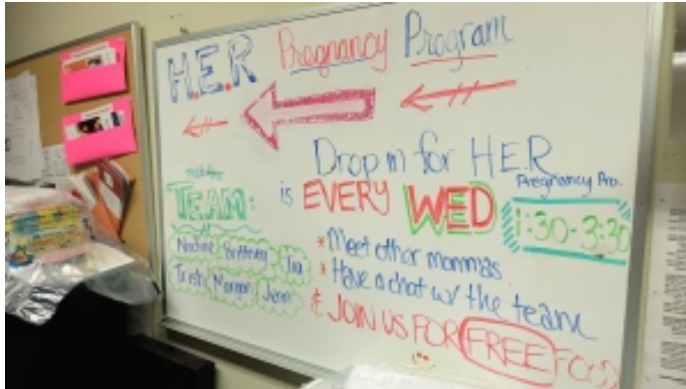 H.E.R Pregnancy Program
Drop in for H.E.R
Pregnancy Pro.
is EVERY WED
1:30-3:30
TEAM:
Nadine Brittney Tia
Trish Morgan Jenn
* Meet other mommas
* Have a chat w/ the team
& JOIN US FOR FREE FOOD